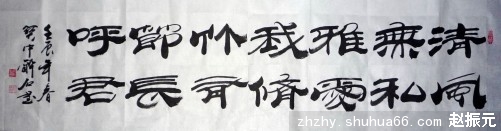 清風
無私
雅愛
我脩
竹有
節長
呼君
壬辰年春
zhzhy.shuhua66.com 赵振元